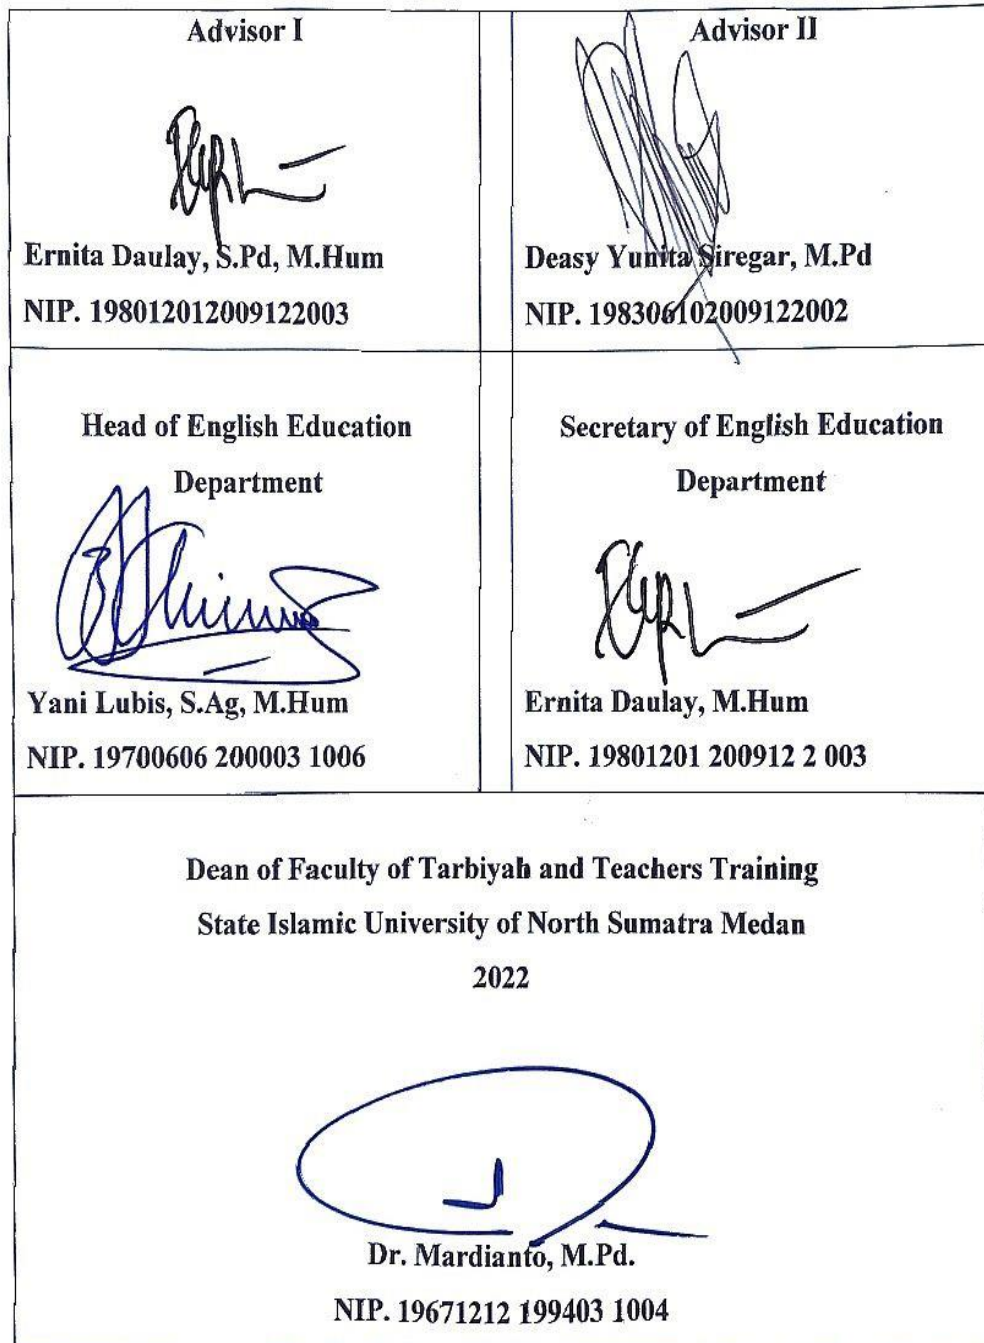 Advisor I
Ernita Daulay, S.Pd, M.Hum
NIP. 198012012009122003
Advisor II
Deasy Yunita Siregar, M.Pd
NIP. 198306102009122002
Head of English Education
Department
Yani Lubis, S.Ag, M.Hum
NIP. 19700606 200003 1006
Secretary of English Education
Department
Ernita Daulay, M.Hum
NIP. 19801201 200912 2 003
Dean of Faculty of Tarbiyah and Teachers Training
State Islamic University of North Sumatra Medan
2022
Dr. Mardianto, M.Pd.
NIP. 19671212 199403 1004